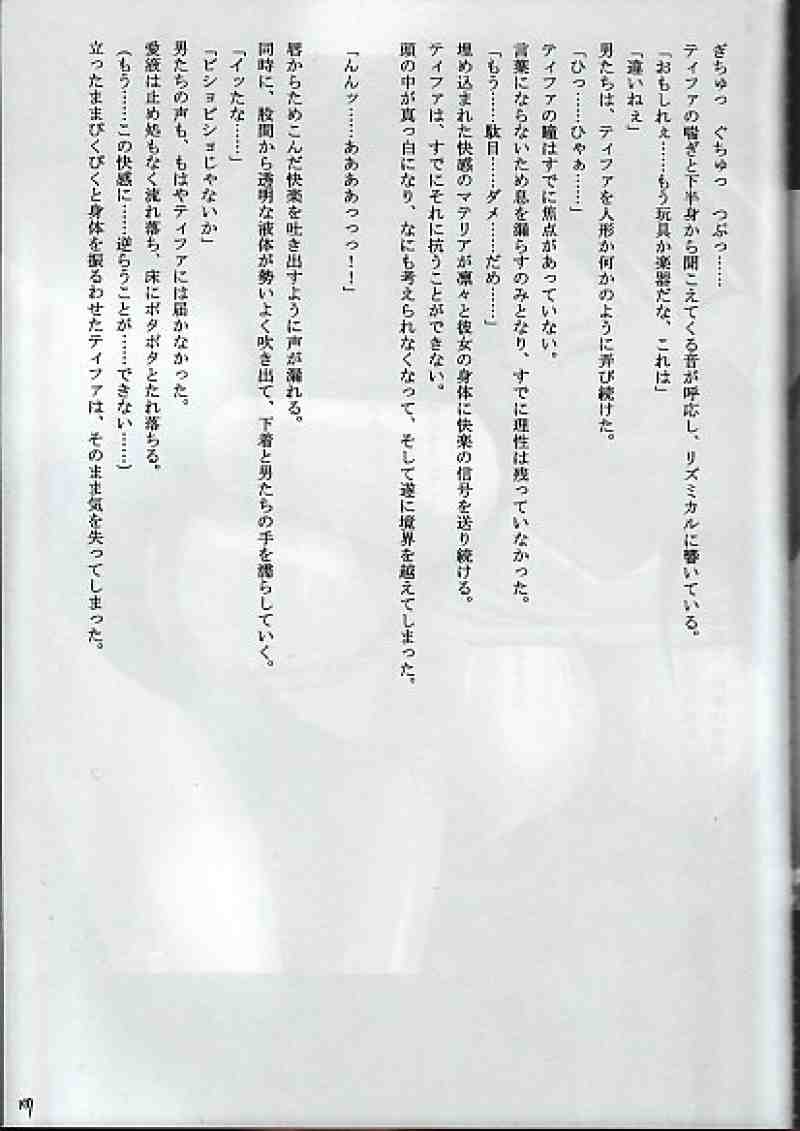 ぎちゅっ　ぐちゅっ　つぷっ……
ティファの喘ぎと下半身から聞こえてくる音が呼応し、リズミカルに響いている。
「おもしれぇ……もう玩具か楽器だな、これは」
「違いねぇ」
男たちは、ティファを人形か何かのように弄び続けた。
「ひっ……ひゃぁ……」
ティファの瞳はすでに焦点があっていない。
言葉にならないため息を漏らすのみとなり、すでに理性は残っていなかった。
「もう……駄目……ダメ……だめ……」
埋め込まれた快感のマテリアが凛々と彼女の身体に快楽の信号を送り続ける。
ティファは、すでにそれに抗うことができない。
頭の中が真っ白になり、なにも考えられなくなって、そして遂に境界を越えてしまった。
「んんッ……ああああっっっ！！」
唇からためこんだ快楽を吐き出すように声が漏れる。
同時に、股間から透明な液体が勢いよく吹き出て、下着と男たちの手を濡らしていく。
「イッたな……」
「ビショビショじゃないか」
男たちの声も、もはやティファには届かなかった。
愛液は止め処もなく流れ落ち、床にポタポタとたれ落ちる。
（もう……この快感に……逆らうことが……できない……）
立ったままびくびくと身体を振るわせたティファは、そのまま気を失ってしまった。